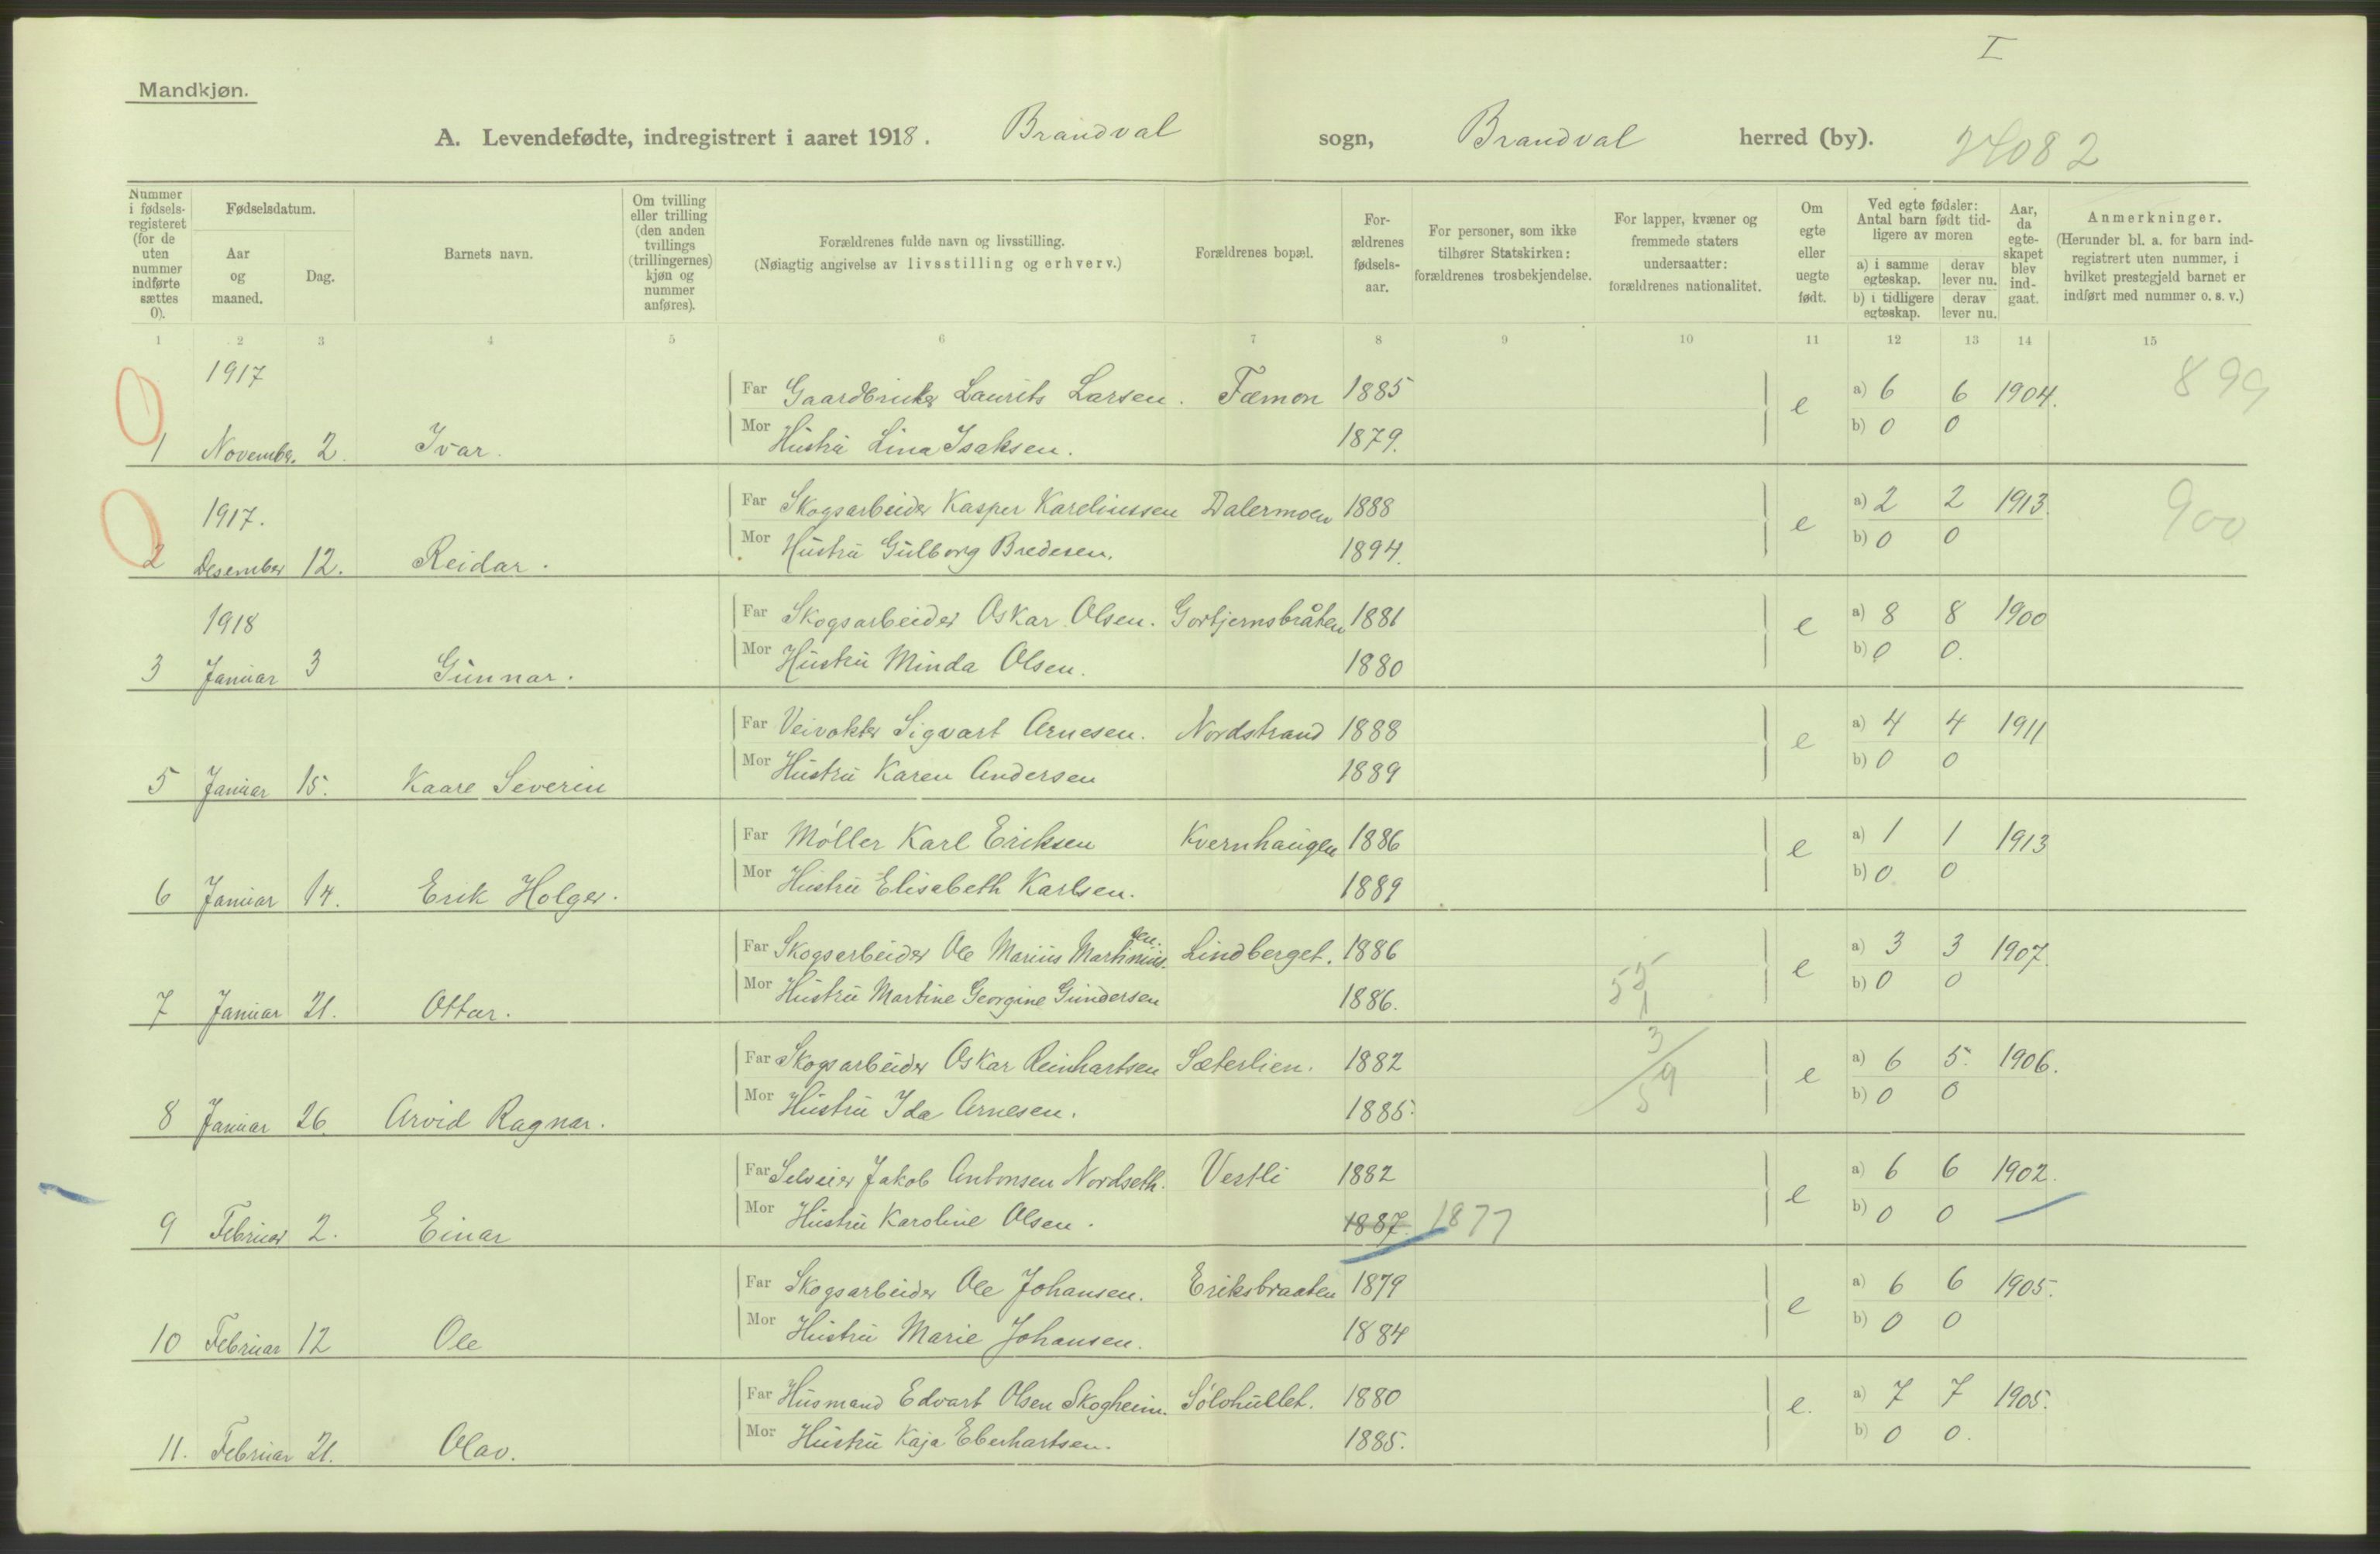 I
Mandkjøn.
A. Levendefødte, indregistrert i aaret 1918. Brandval sogn, Brandval herred (by). 24082
Nummer i fødselsregisteret (for de uten nummer indførte sættes 0).
Fødselsdatum.
Aar og maaned.
Dag.
Barnets navn.
Om tvilling eller trilling (den anden tvillings (trillingernes) kjøn og nummer anføres).
Forældrenes fulde navn og livsstilling.
(Nøiagtig angivelse av livsstilling og erhverv.)
Forældrenes bopæl.
Forældrenes fødselsaar.
For personer, som ikke tilhører Statskirken: forældrenes trosbekjendelse.
For lapper, kvæner og fremmede staters undersaatter: forældrenes nationalitet.
Om egte eller uegte født.
Ved egte fødsler: Antal barn født tidligere av moren
a) i samme egteskap. derav lever nu.
b) i tidligere egteskap. derav lever nu.
Aar, da egteskapet blev indgaat.
Anmerkninger.
(Herunder bl. a. for barn indregistrert uten nummer, i hvilket prestegjeld barnet er indført med nummer o. s. v.)
1 2 3 4 5 6 7 8 9 10 11 12 13 14 15
1917
Far Gaardbruker Laurits Larsen. Fæmon 1885 e a) 6 6 1904. 899
1 November. 2. Ivar. Mor Hustru Lina Isaksen. 1879. b) 0 0
1917.
Far Skogsarbeider Kasper Kareliussen Dalermoen 1888 e a) 2 2 1913. 900
2 Desember 12. Reidar. Mor Hustru Gulborg Bredesen. 1894. b) 0 0
1918
Far Skogsarbeider Oskar Olsen. Gortjernsbråten 1881 e a) 8 8 1900
3 Januar 3 Gunnar. Mor Hustru Minda Olsen. 1880 b) 0 0.
Far Veivokter Sigvart Arnesen. Nordstrand 1888 e a) 4 4 1911
5 Januar 15. Kaare Severin Mor Hustru Karen Andersen 1889 b) 0 0
Far Møller Karl Eriksen Kvernhaugen 1886 e a) 1 1 1913
6 Januar 14. Erik Holger. Mor Hustru Elisabeth Karlsen. 1889 b) 0 0
Far Skogsarbeider Ole Marius Martiniussen. Lindberget. 1886 e a) 3 3 1907.
7 Januar 21. Ottar. Mor Hustru Martine Georgine Gundersen 1886. b) 0 0
Far Skogsarbeider Oskar Reinhartsen Sæterlien. 1882 3/59 e a) 6 5. 1906.
8 Januar 26 Arvid Ragnar. Mor Hustru Ida Arnesen. 1885. b) 0 0
Far Selveier Jakob Antonsen Nordseth. Vestli 1882 e a) 6 6 1902.
9 Februar 2. Einar Mor Hustru Karoline Olsen. 1887. 1877 b) 0 0
Far Skogsarbeider Ole Johansen. Eriksbraaten 1879 e a) 6 6 1905.
10 Februar 12 Ole Mor Hustru Marie Johansen. 1884 b) 0 0
Far Husmand Edvart Olsen Skogheim. Sølvhullet. 1880 e. a) 7 7 1905.
11. Februar 21. Olav. Mor Hustru Kaja Eberhartsen. 1885. b) 0 0.